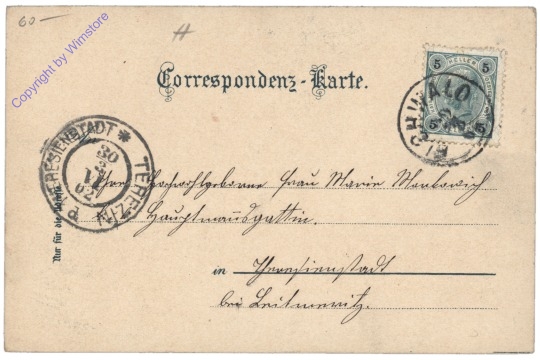 60-
#
Copyright by Wimstore
Correspondenz-Karte.
5 HELLER 5
5 5
EICHWALD
THERESIENSTADT * TEREZIN
30
11
02
Frau Marie Markowich
Hauptmannsgattin.
in Theresienstadt
bei Leitmeritz.
Nur für die